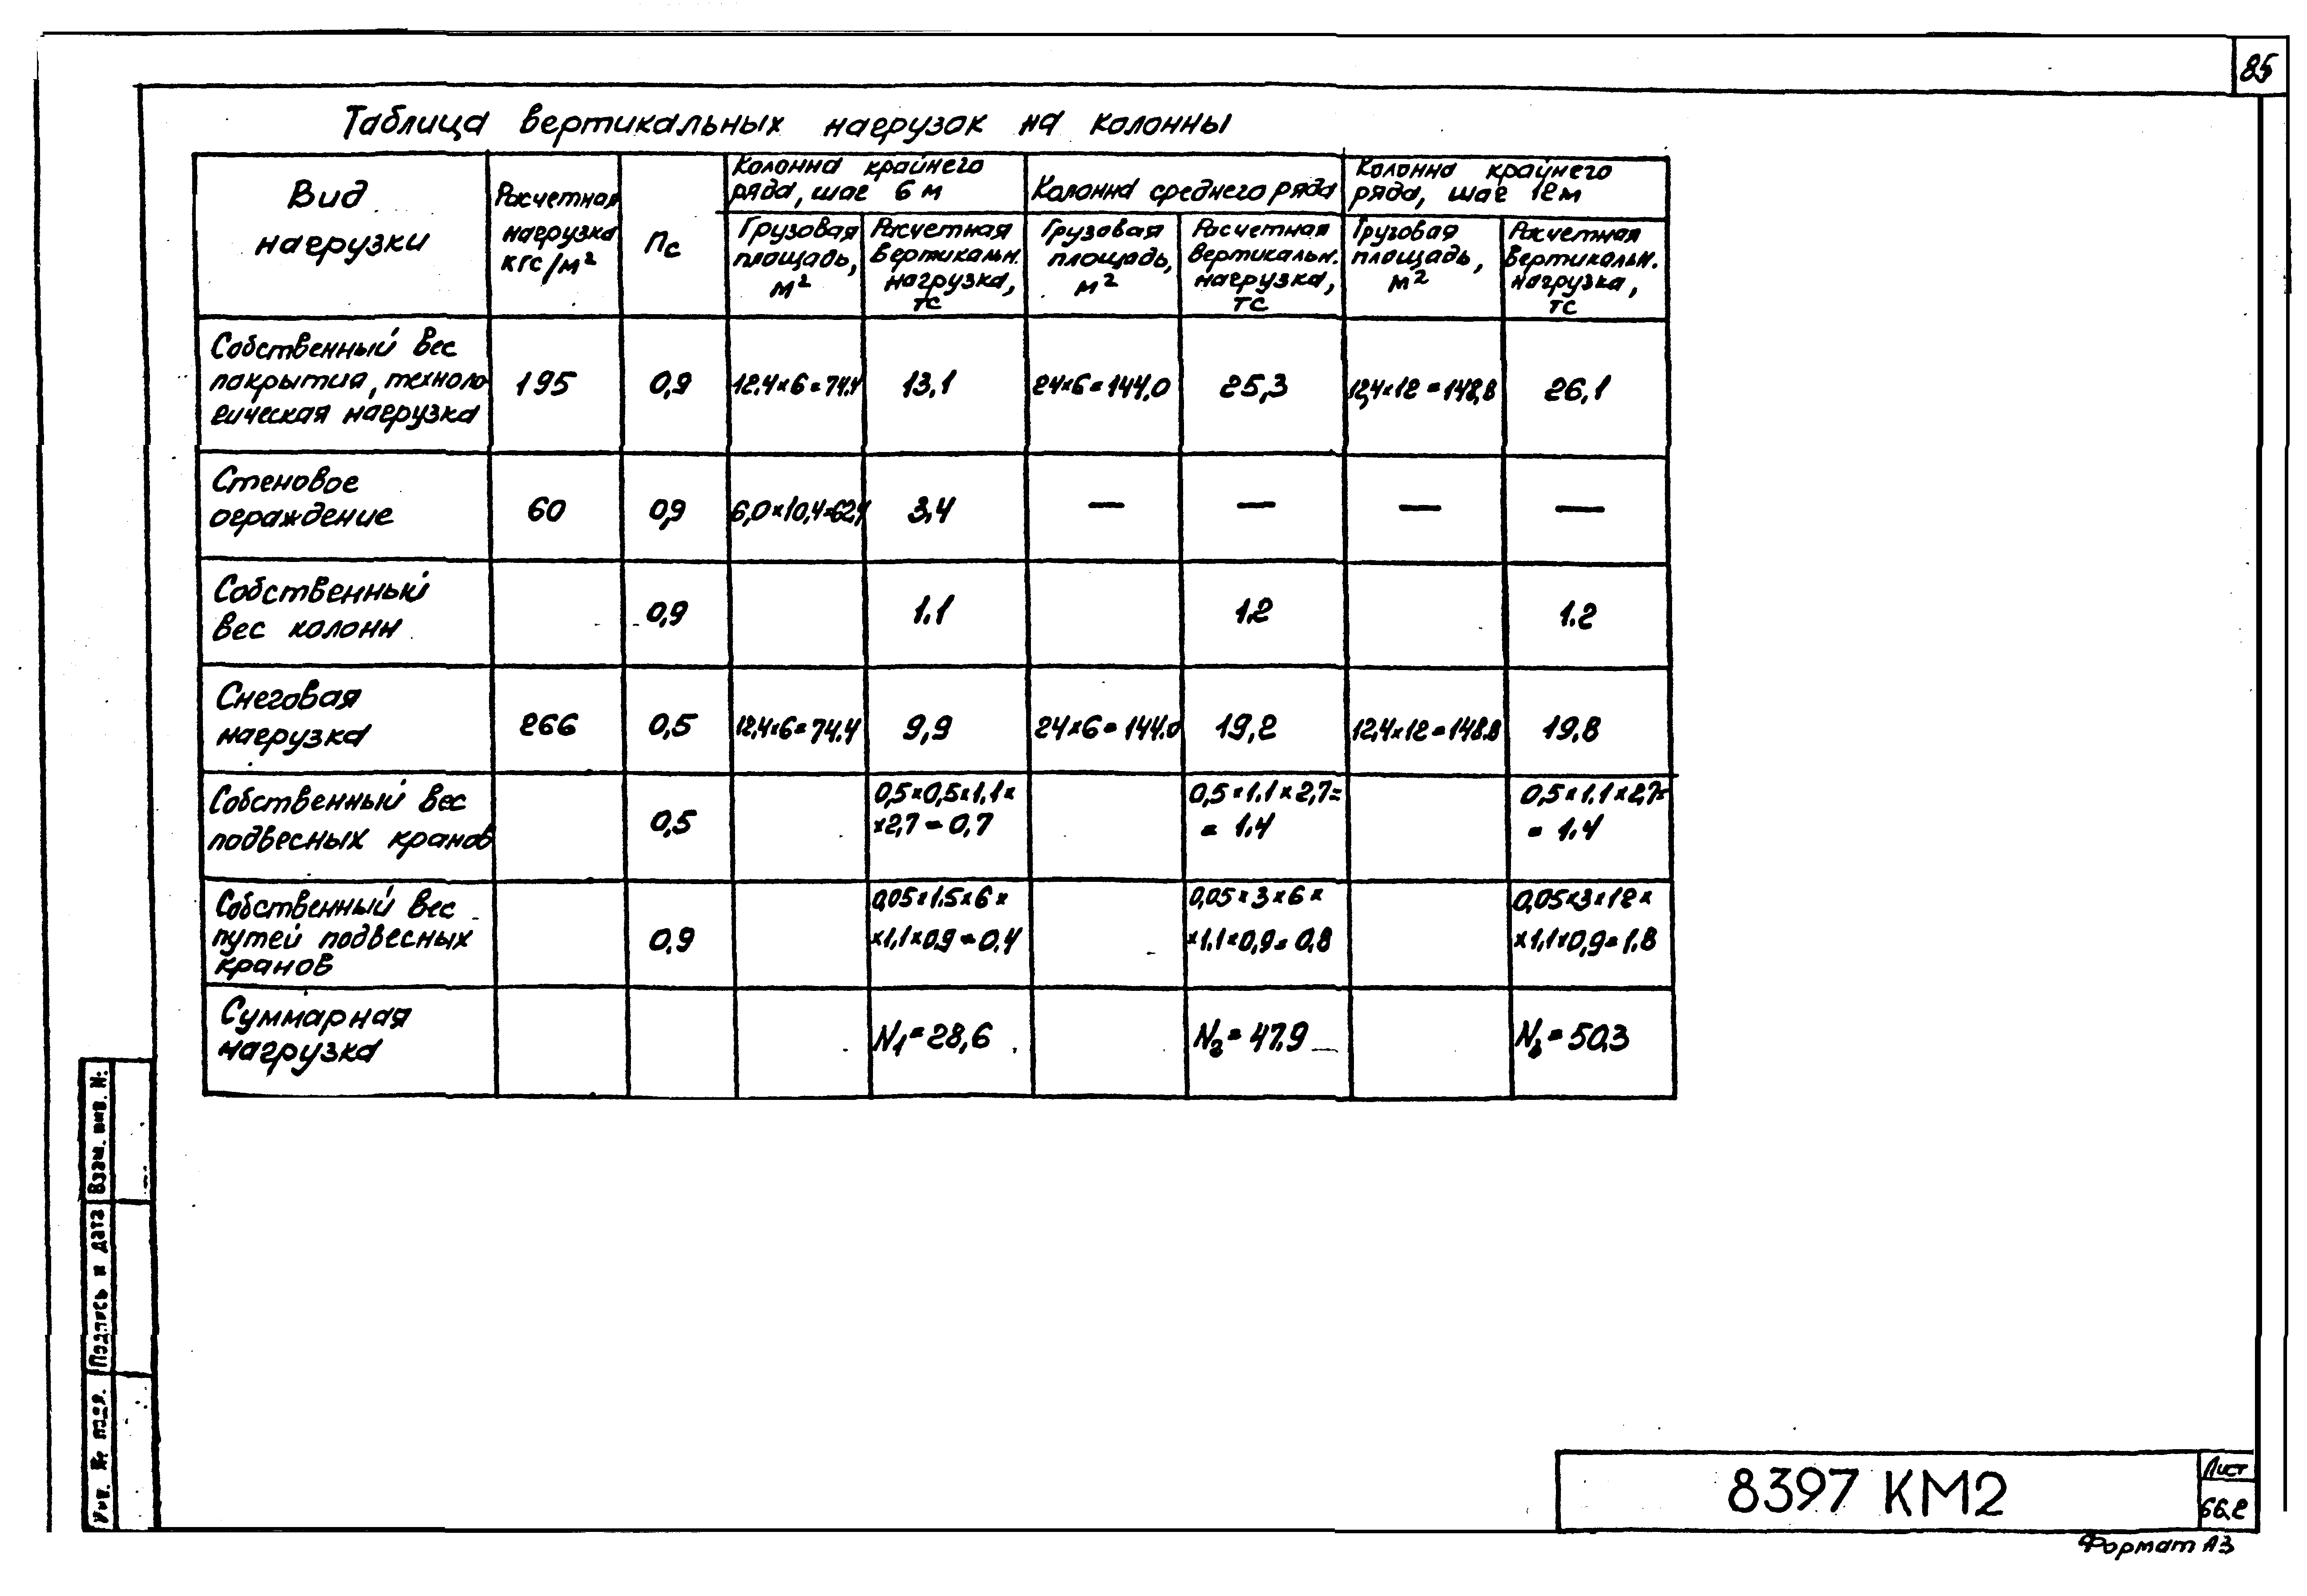 85
Таблица вертикальных нагрузок на колонны
Вид нагрузки
Расчетная нагрузка кгс/м²
nс
Колонна крайнего ряда, шаг 6 м
Колонна среднего ряда
Колонна крайнего ряда, шаг 12м
Грузовая площадь, м²
Расчетная вертикальн. нагрузка, тс
Грузовая площадь, м²
Расчетная вертикальн. нагрузка, тс
Грузовая площадь, м²
Расчетная вертикальн. нагрузка, тс
Собственный вес покрытия, техноло гическая нагрузка
195
0,9
12,4×6=74,4
13,1
24×6=144,0
25,3
12,4×12=148,8
26,1
Стеновое ограждение
60
0,9
6,0×10,4=62,4
3,4
—
—
—
—
Собственный вес колонн
0,9
1.1
1.2
1.2
Снеговая нагрузка
266
0,5
12,4×6=74,4
9,9
24×6=144.0
19,2
12,4×12=148.8
19,8
Собственный вес подвесных кранов
0,5
0,5×0,5×1,1×
×2,7=0,7
0,5×1.1×2,7=
=1.4
0,5×1.1×2,7=
=1.4
Собственный вес путей подвесных кранов
0,9
0,05×1.5×6×
×1,1×0,9=0,4
0,05×3×6×
×1.1×0,9=0,8
0,05×3×12×
×1,1×0,9=1,8
Суммарная нагрузка
N₁=28,6
N₂=47,9
N₃=50,3
Взам. инв. №
Подпись и дата
Инв. № подл.
8397 КМ2
Лист
66.2
Формат А3